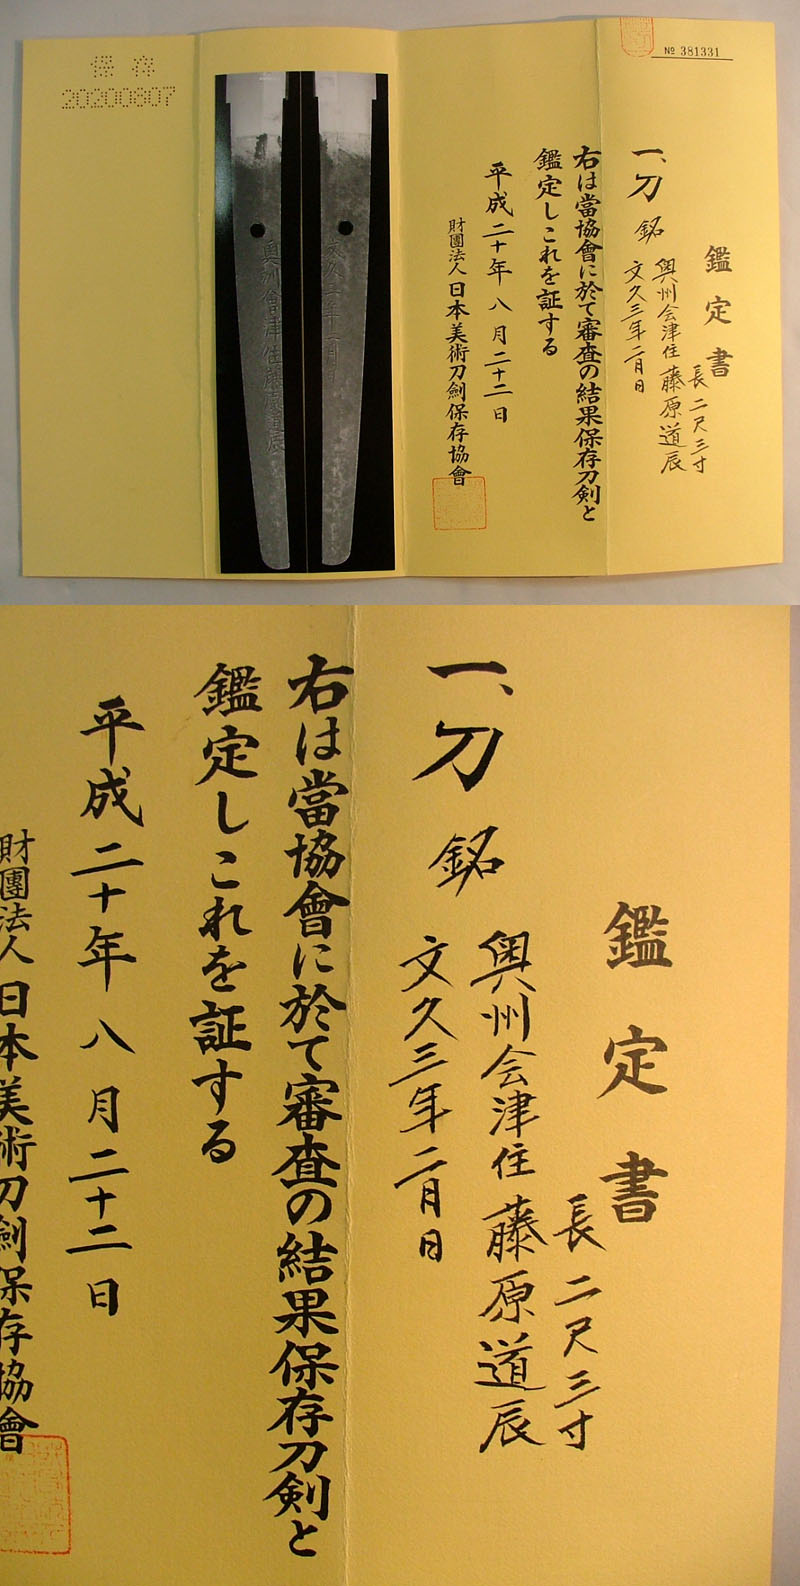 № 381331
鑑定書
長 二尺三寸
一、刀 銘 奥州会津住藤原道辰
文久三年二月日
右は當協會に於て審査の結果保存刀剣と
鑑定しこれを証する
平成二十年八月二十二日
財團法人 日本美術刀劍保存協會
奥州會津住藤原道辰
文久三年二月日
保存
20200807
鑑定書
長 二尺三寸
一、刀 銘 奥州会津住藤原道辰
文久三年二月日
右は當協會に於て審査の結果保存刀剣と
鑑定しこれを証する
平成二十年八月二十二日
財團法人 日本美術刀劍保存協會